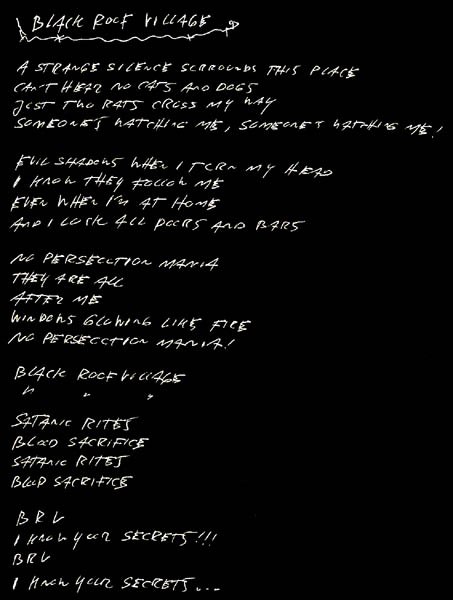 BLACK ROCK VILLAGE
A STRANGE SILENCE SURROUNDS THIS PLACE
CAN'T HEAR NO CATS AND DOGS
JUST TWO RATS CROSS MY WAY
SOMEONE'S WATCHING ME, SOMEONE'S WATCHING ME!
EVIL SHADOWS WHEN I TURN MY HEAD
I KNOW THEY FOLLOW ME
EVEN WHEN I'M AT HOME
AND I LOCK ALL DOORS AND BARS
NO PERSECUTION MANIA
THEY ARE ALL
AFTER ME
WINDOWS GLOWING LIKE FIRE
NO PERSECUTION MANIA!
BLACK ROCK VILLAGE
" " "
SATANIC RITES
BLOOD SACRIFICE
SATANIC RITES
BLOOD SACRIFICE
BRV
I KNOW YOUR SECRETS!!!
BRV
I KNOW YOUR SECRETS...